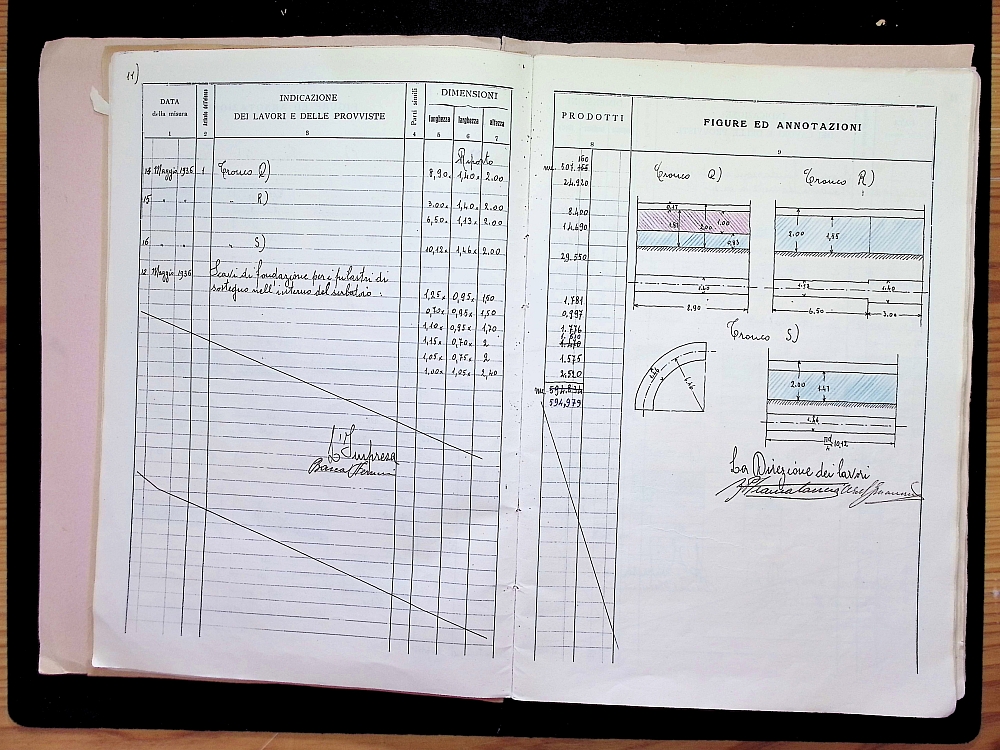 11)
DATA
della misura
INDICAZIONE
DEI LAVORI E DELLE PROVVISTE
Parti simili
DIMENSIONI
lunghezza larghezza altezza
1 2 3 4 5 6 7
Riporto
14 Maggio 1936 1 Tronco Q) 8,90 × 1,40 × 2.00
15 " " " R) 3.00 × 1,40 × 2.00
6,50 × 1,13 × 2.00
16 " " " S) 10,12 × 1,46 × 2,00
12 Maggio 1936 Scavi di fondazione per i pilastri di
sostegno nell'interno del serbatoio: 1,25 × 0,95 × 1,50
0,70 × 0,95 × 1,50
1,10 × 0,95 × 1,70
1,15 × 0,70 × 2
1,05 × 0,75 × 2
1,00 × 1,05 × 2,40
L'Impresa
PRODOTTI
FIGURE ED ANNOTAZIONI
8 9
160
mc 507.155
24.920
8.400
14.690
29.550
1.781
0.997
1.776
1.610
1.575
2.520
mc 594.834
594,979
Tronco Q) Tronco R)
2.00 1.00
0,43
1.40
8.90
2.00 1,55
1.40
6.50 3.00
Tronco S)
1.46
2.00 1.47
1.46
10,12
La Direzione dei lavori